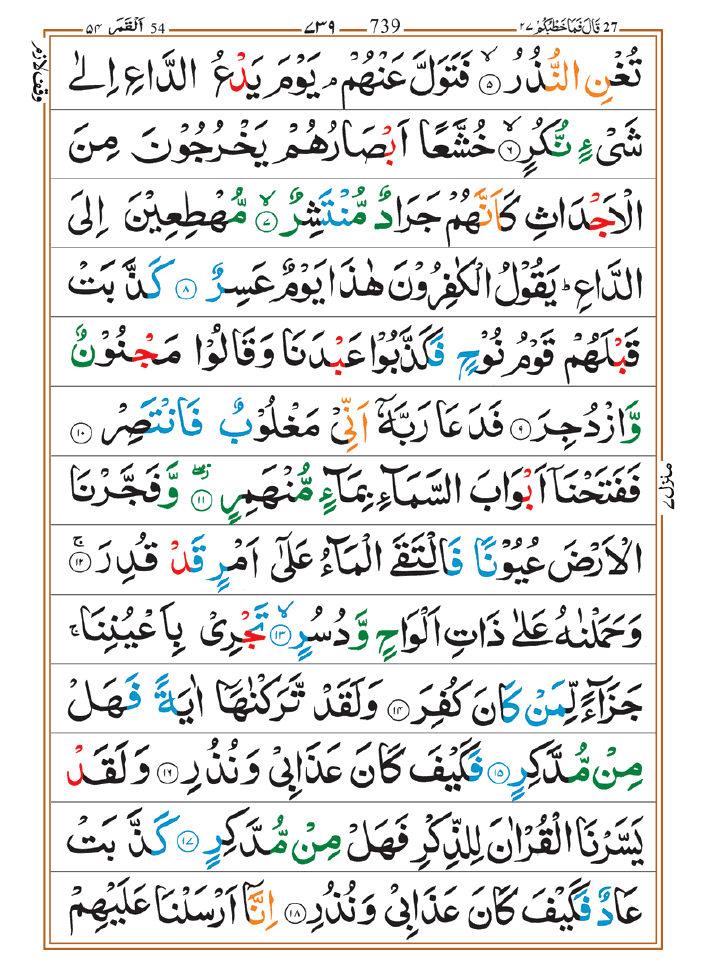 27 قَالَ فَمَا خَطْبُكُمْ ٢٧
739 ٧٣٩
54 اَلْقَمَر ٥٤
وقف لازم
تُغْنِ النُّذُرُ ۙ‏﴿۵﴾ فَتَوَلَّ عَنْهُمْ ۘ يَوْمَ يَدْعُ الدَّاعِ اِلٰى
شَىْءٍ نُّكُرٍ ۙ‏﴿۶﴾ خُشَّعًا اَبْصَارُهُمْ يَخْرُجُوْنَ مِنَ
الْاَجْدَاثِ كَاَنَّهُمْ جَرَادٌ مُّنْتَشِرٌ ۙ‏﴿۷﴾ مُّهْطِعِيْنَ اِلَى
الدَّاعِ ؕ يَقُوْلُ الْكٰفِرُوْنَ هٰذَا يَوْمٌ عَسِرٌ ‏﴿۸﴾ كَذَّبَتْ
قَبْلَهُمْ قَوْمُ نُوْحٍ فَكَذَّبُوْا عَبْدَنَا وَقَالُوْا مَجْنُوْنٌ
وَّازْدُجِرَ ‏﴿۹﴾ فَدَعَا رَبَّهٗۤ اَنِّىْ مَغْلُوْبٌ فَانْتَصِرْ ‏﴿۱۰﴾
فَفَتَحْنَاۤ اَبْوَابَ السَّمَآءِ بِمَآءٍ مُّنْهَمِرٍ ۖ‏﴿۱۱﴾ وَّفَجَّرْنَا
الْاَرْضَ عُيُوْنًا فَالْتَقَى الْمَآءُ عَلٰٓى اَمْرٍ قَدْ قُدِرَ ۚ‏﴿۱۲﴾
وَحَمَلْنٰهُ عَلٰى ذَاتِ اَلْوَاحٍ وَّدُسُرٍ ۙ‏﴿۱۳﴾ تَجْرِىْ بِاَعْيُنِنَا ۚ
جَزَآءً لِّمَنْ كَانَ كُفِرَ ‏﴿۱۴﴾ وَلَقَدْ تَّرَكْنٰهَاۤ اٰيَةً فَهَلْ
مِنْ مُّدَّكِرٍ ‏﴿۱۵﴾ فَكَيْفَ كَانَ عَذَابِىْ وَنُذُرِ ‏﴿۱۶﴾ وَلَقَدْ
يَسَّرْنَا الْقُرْاٰنَ لِلذِّكْرِ فَهَلْ مِنْ مُّدَّكِرٍ ‏﴿۱۷﴾ كَذَّبَتْ
عَادٌ فَكَيْفَ كَانَ عَذَابِىْ وَنُذُرِ ‏﴿۱۸﴾ اِنَّاۤ اَرْسَلْنَا عَلَيْهِمْ
منزل ٧